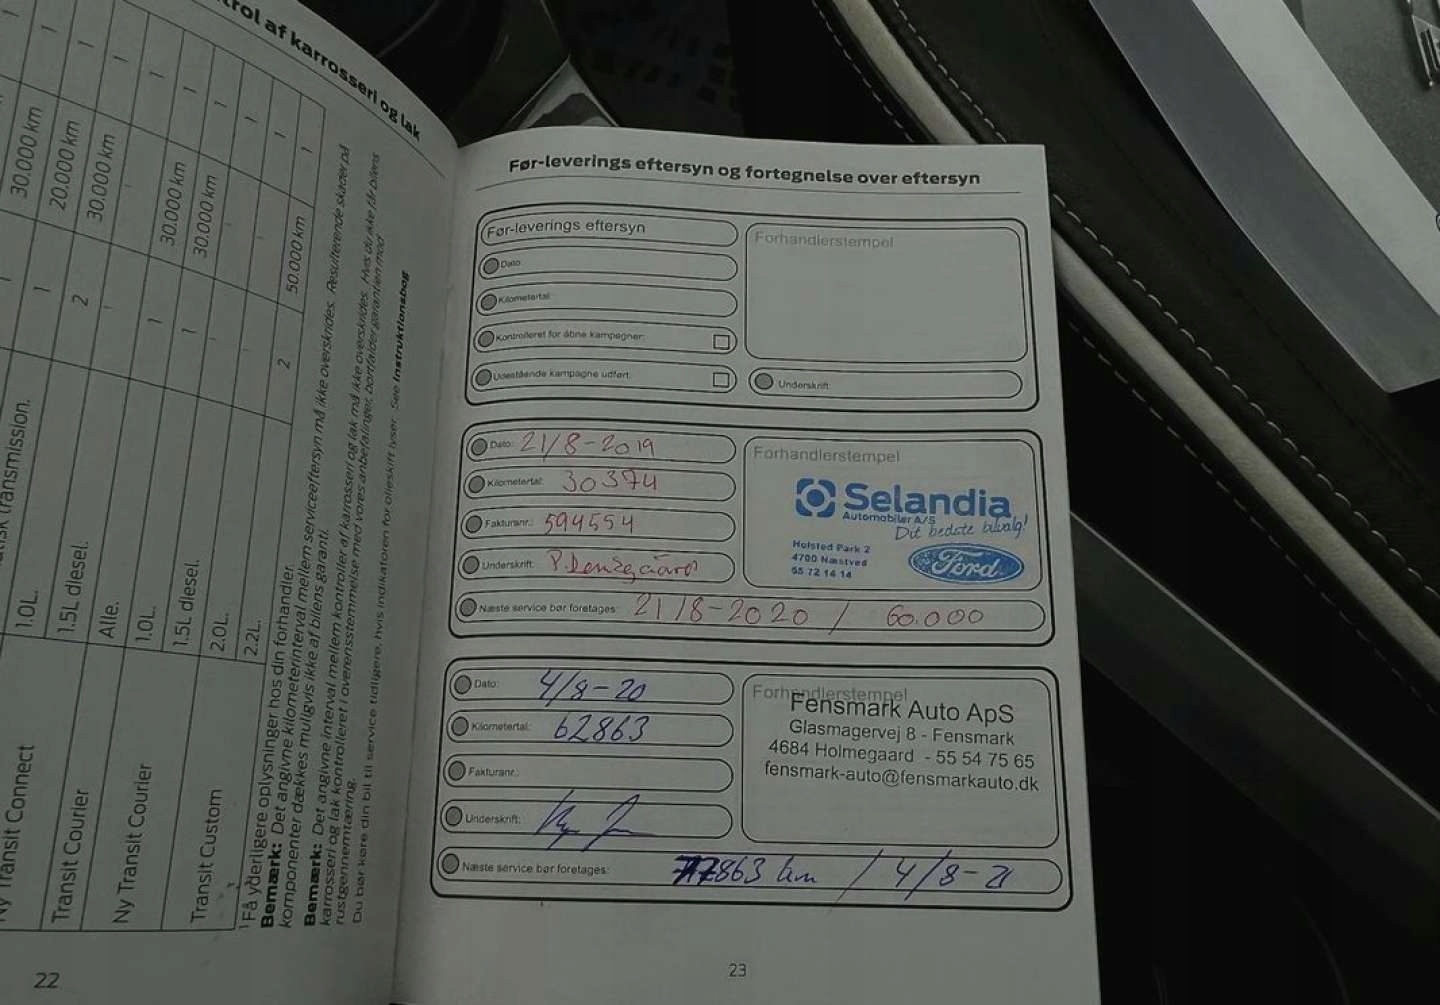 trol af karrosseri og lak
1 1 1 1 1 1 1 1 1
30.000 km
20.000 km
30.000 km
30.000 km
30.000 km
50.000 km
1
2
1
1
2
transmission.
1.0L.
1.5L diesel.
Alle.
1.0L.
1.5L diesel.
2.0L.
2.2L.
Ny Transit Connect
Transit Courier
Ny Transit Courier
Transit Custom
1 Få yderligere oplysninger hos din forhandler.
Bemærk: Det angivne kilometerinterval mellem serviceeftersyn må ikke overskrides. Resulterende skader på
komponenter dækkes muligvis ikke af bilens garanti.
Bemærk: Det angivne interval mellem kontroller af karrosseri og lak må ikke overskrides. Hvis du ikke får bilens
karrosseri og lak kontrolleret i overensstemmelse med vores anbefalinger, bortfalder garantien mod
rustgennemtæring.
Du bør køre din bil til service tidligere, hvis indikatoren for olieskift lyser. See Instruktionsbog
22
Før-leverings eftersyn og fortegnelse over eftersyn
Før-leverings eftersyn
Dato:
Kilometertal:
Kontrolleret for åbne kampagner:
Udestående kampagne udført:
Forhandlerstempel
Underskrift
Dato: 21/8-2019
Kilometertal: 30374
Fakturanr.: 594554
Underskrift:
Forhandlerstempel
Selandia
Automobiler A/S
Dit bedste bilvalg!
Holsted Park 2
4700 Næstved
55 72 14 14
Ford
Næste service bør foretages: 21/8-2020 / 60.000
Dato: 4/8-20
Kilometertal: 62863
Fakturanr.:
Underskrift:
Forhandlerstempel
Fensmark Auto ApS
Glasmagervej 8 - Fensmark
4684 Holmegaard - 55 54 75 65
fensmark-auto@fensmarkauto.dk
Næste service bør foretages: 863 km / 4/8-21
23